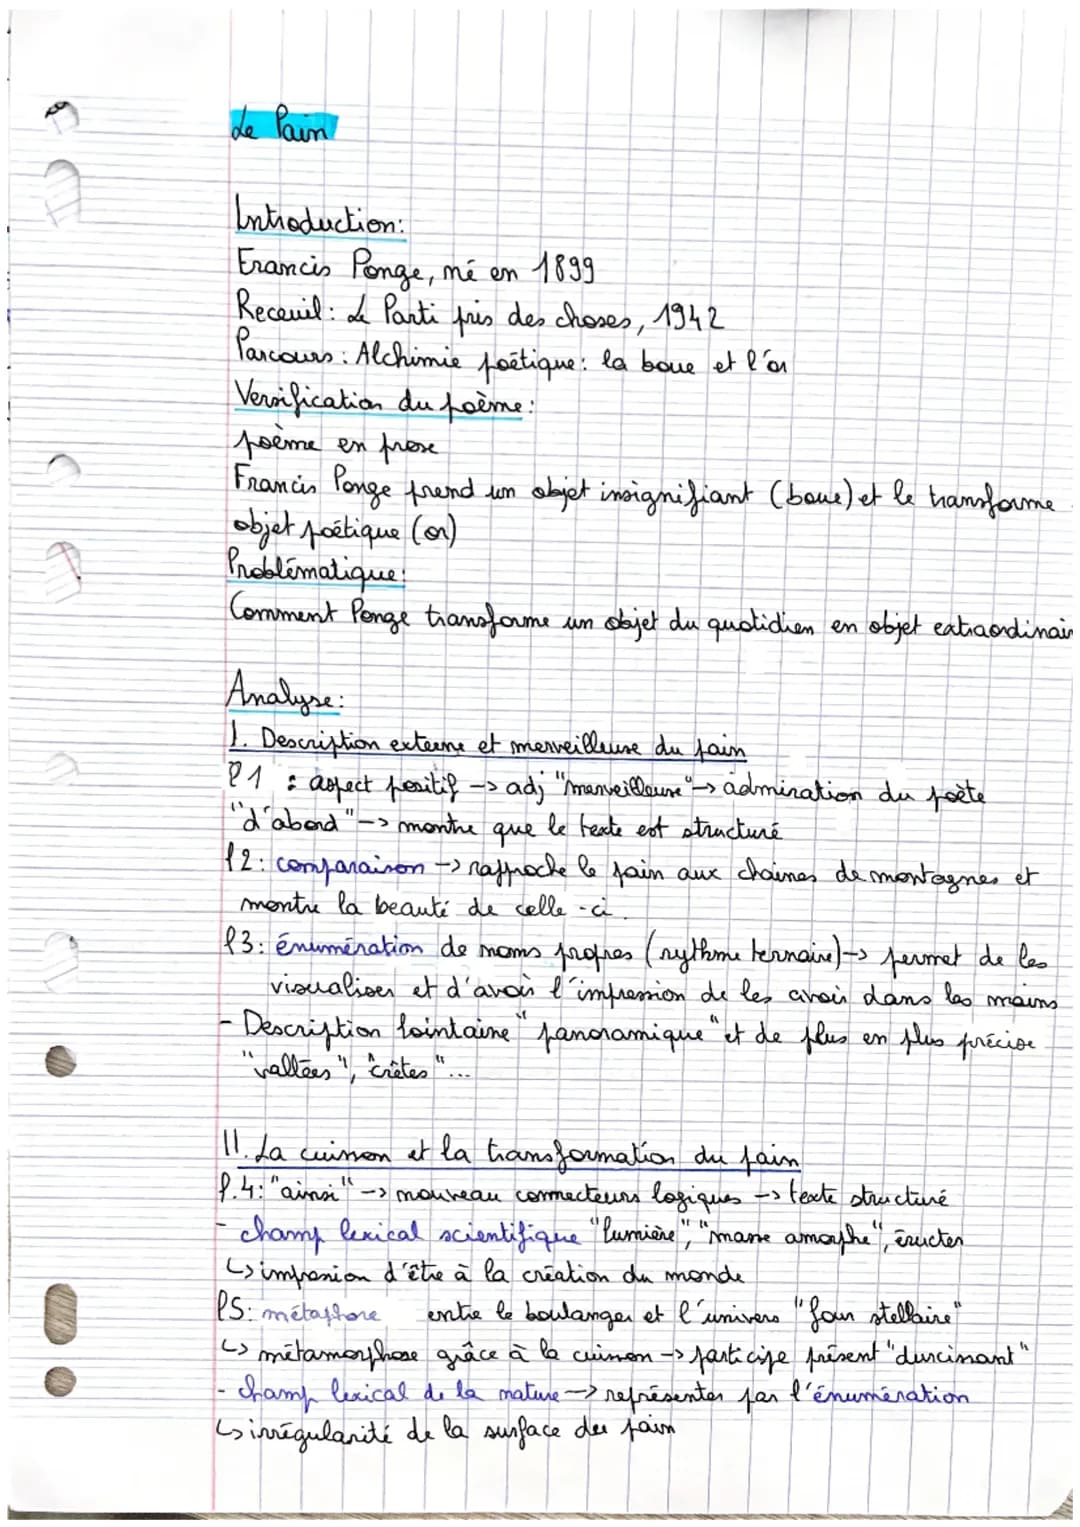 Le Pain
Introduction:
Francis Ponge, né en 1899
Receuil: Le Parti pris des choses, 1942
Parcours: Alchimie poëtique: la boue et l'or
Versification du poème:
poème en prose
Francis Ponge prend un objet insignifiant (boue) et le transforme
objet poétique (or)
Problématique:
Comment Ponge transforme un objet du quotidien en objet extraordinair
Analyse:
I. Description externe et merveilleuse du pain
l1 : aspect positif -> adj "merveilleuse" -> admiration du poète
"d'abord" -> montre que le texte est structuré
l2: comparaison -> rapproche le pain aux chaines de montagnes et
montre la beauté de celle-ci.
l3: énumération de noms propres (rythme ternaire) -> permet de les
visualiser et d'avoir l'impression de les avoir dans les mains
- Description lointaine "panoramique" et de plus en plus précise
"vallées", "crêtes"...
II. La cuisson et la transformation du pain
l.4: "ainsi" -> nouveau connecteurs logiques -> texte structuré
- champ lexical scientifique "lumière", "masse amorphe", éructer
↳ impression d'être à la création du monde
l5: métaphore entre le boulanger et l'univers "four stellaire"
↳ métamorphose grâce à la cuisson -> participe présent "durcissant"
- champ lexical de la nature -> représenter par l'énumération
↳ irrégularité de la surface du pain